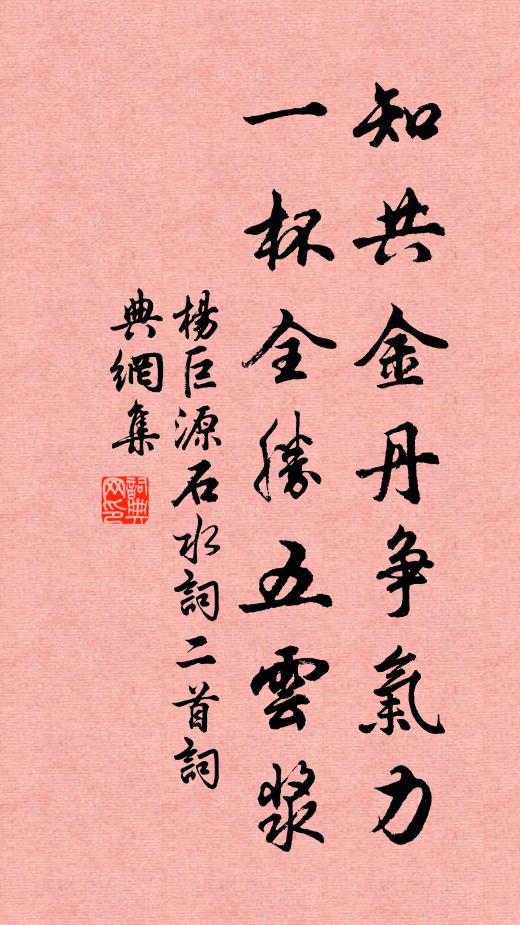 知共金丹争氣力
一杯全勝五雲漿
楊巨源石水詞二首詞
典網集
詞典網印